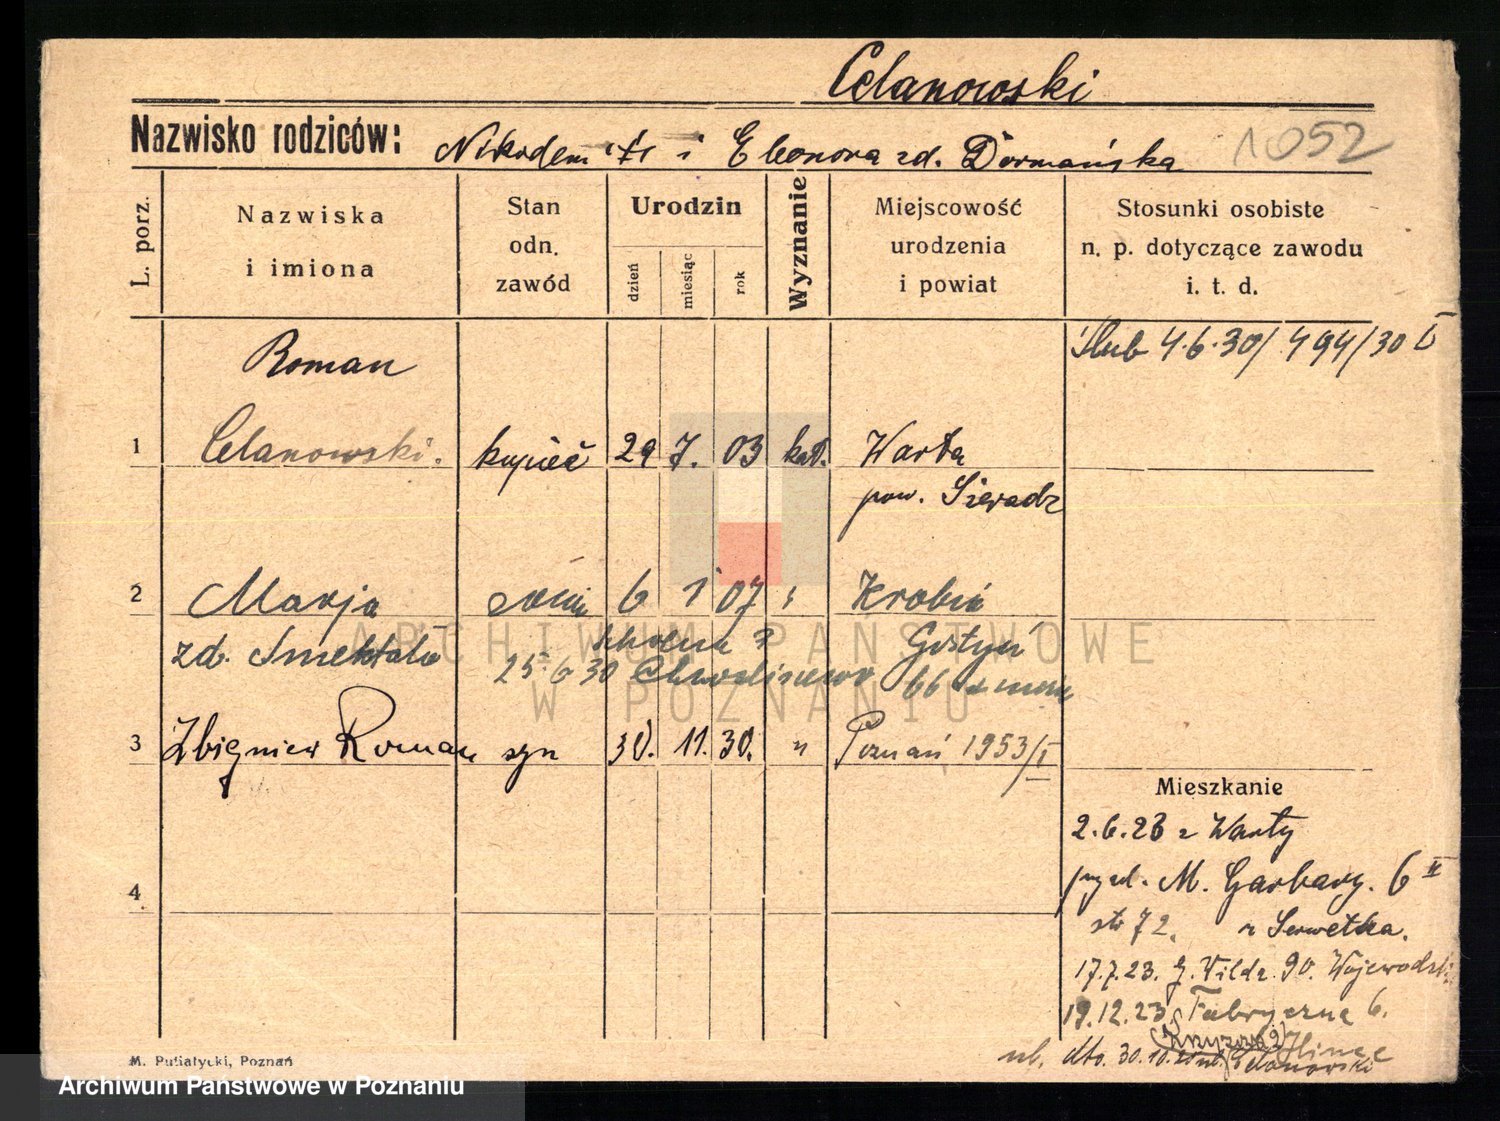 Celanowski
Nazwisko rodziców: Nikodem i Eleonora zd. Dormańska 1052
L. porz.
Nazwiska i imiona
Stan odn. zawód
Urodzin
dzień miesiąc rok
Wyznanie
Miejscowość urodzenia i powiat
Stosunki osobiste n. p. dotyczące zawodu i. t. d.
Roman
ślub 4.6.30/ 494/30 I
1 Celanowski. kupiec 29 7. 03 kat. Warta
pow. Sieradz
2 Marja 6 1 07 Krobia
zd. Smektała Gostyń
25.6.30
3 Zbigniew Roman syn 30. 11. 30. " Poznań 1953/I
Mieszkanie
2.6.23 z Warty
M. Garbary. 6 II
str 72. u Serwetka.
17.7.23. G. Wilda. 90. Wojewodski
19.12.23 Fabryczna 6.
dto. 30.10.
Celanowski
4
M. Putiatycki, Poznań
ARCHIWUM PAŃSTWOWE
W POZNANIU
Archiwum Państwowe w Poznaniu